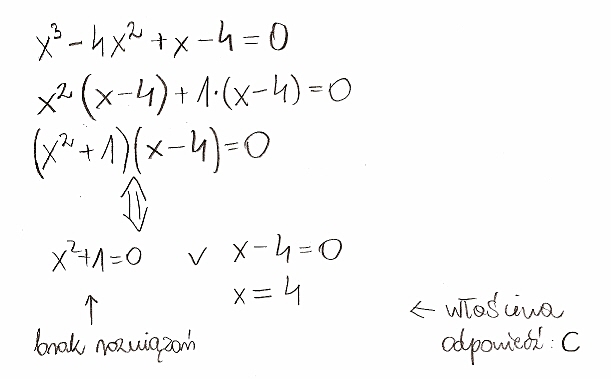 x³ - 4x² + x - 4 = 0
x²(x-4) + 1·(x-4) = 0
(x² + 1)(x-4) = 0
⇕
x²+1=0 ∨ x-4=0
x = 4
↑
brak rozwiązań
← właściwa
odpowiedź: C